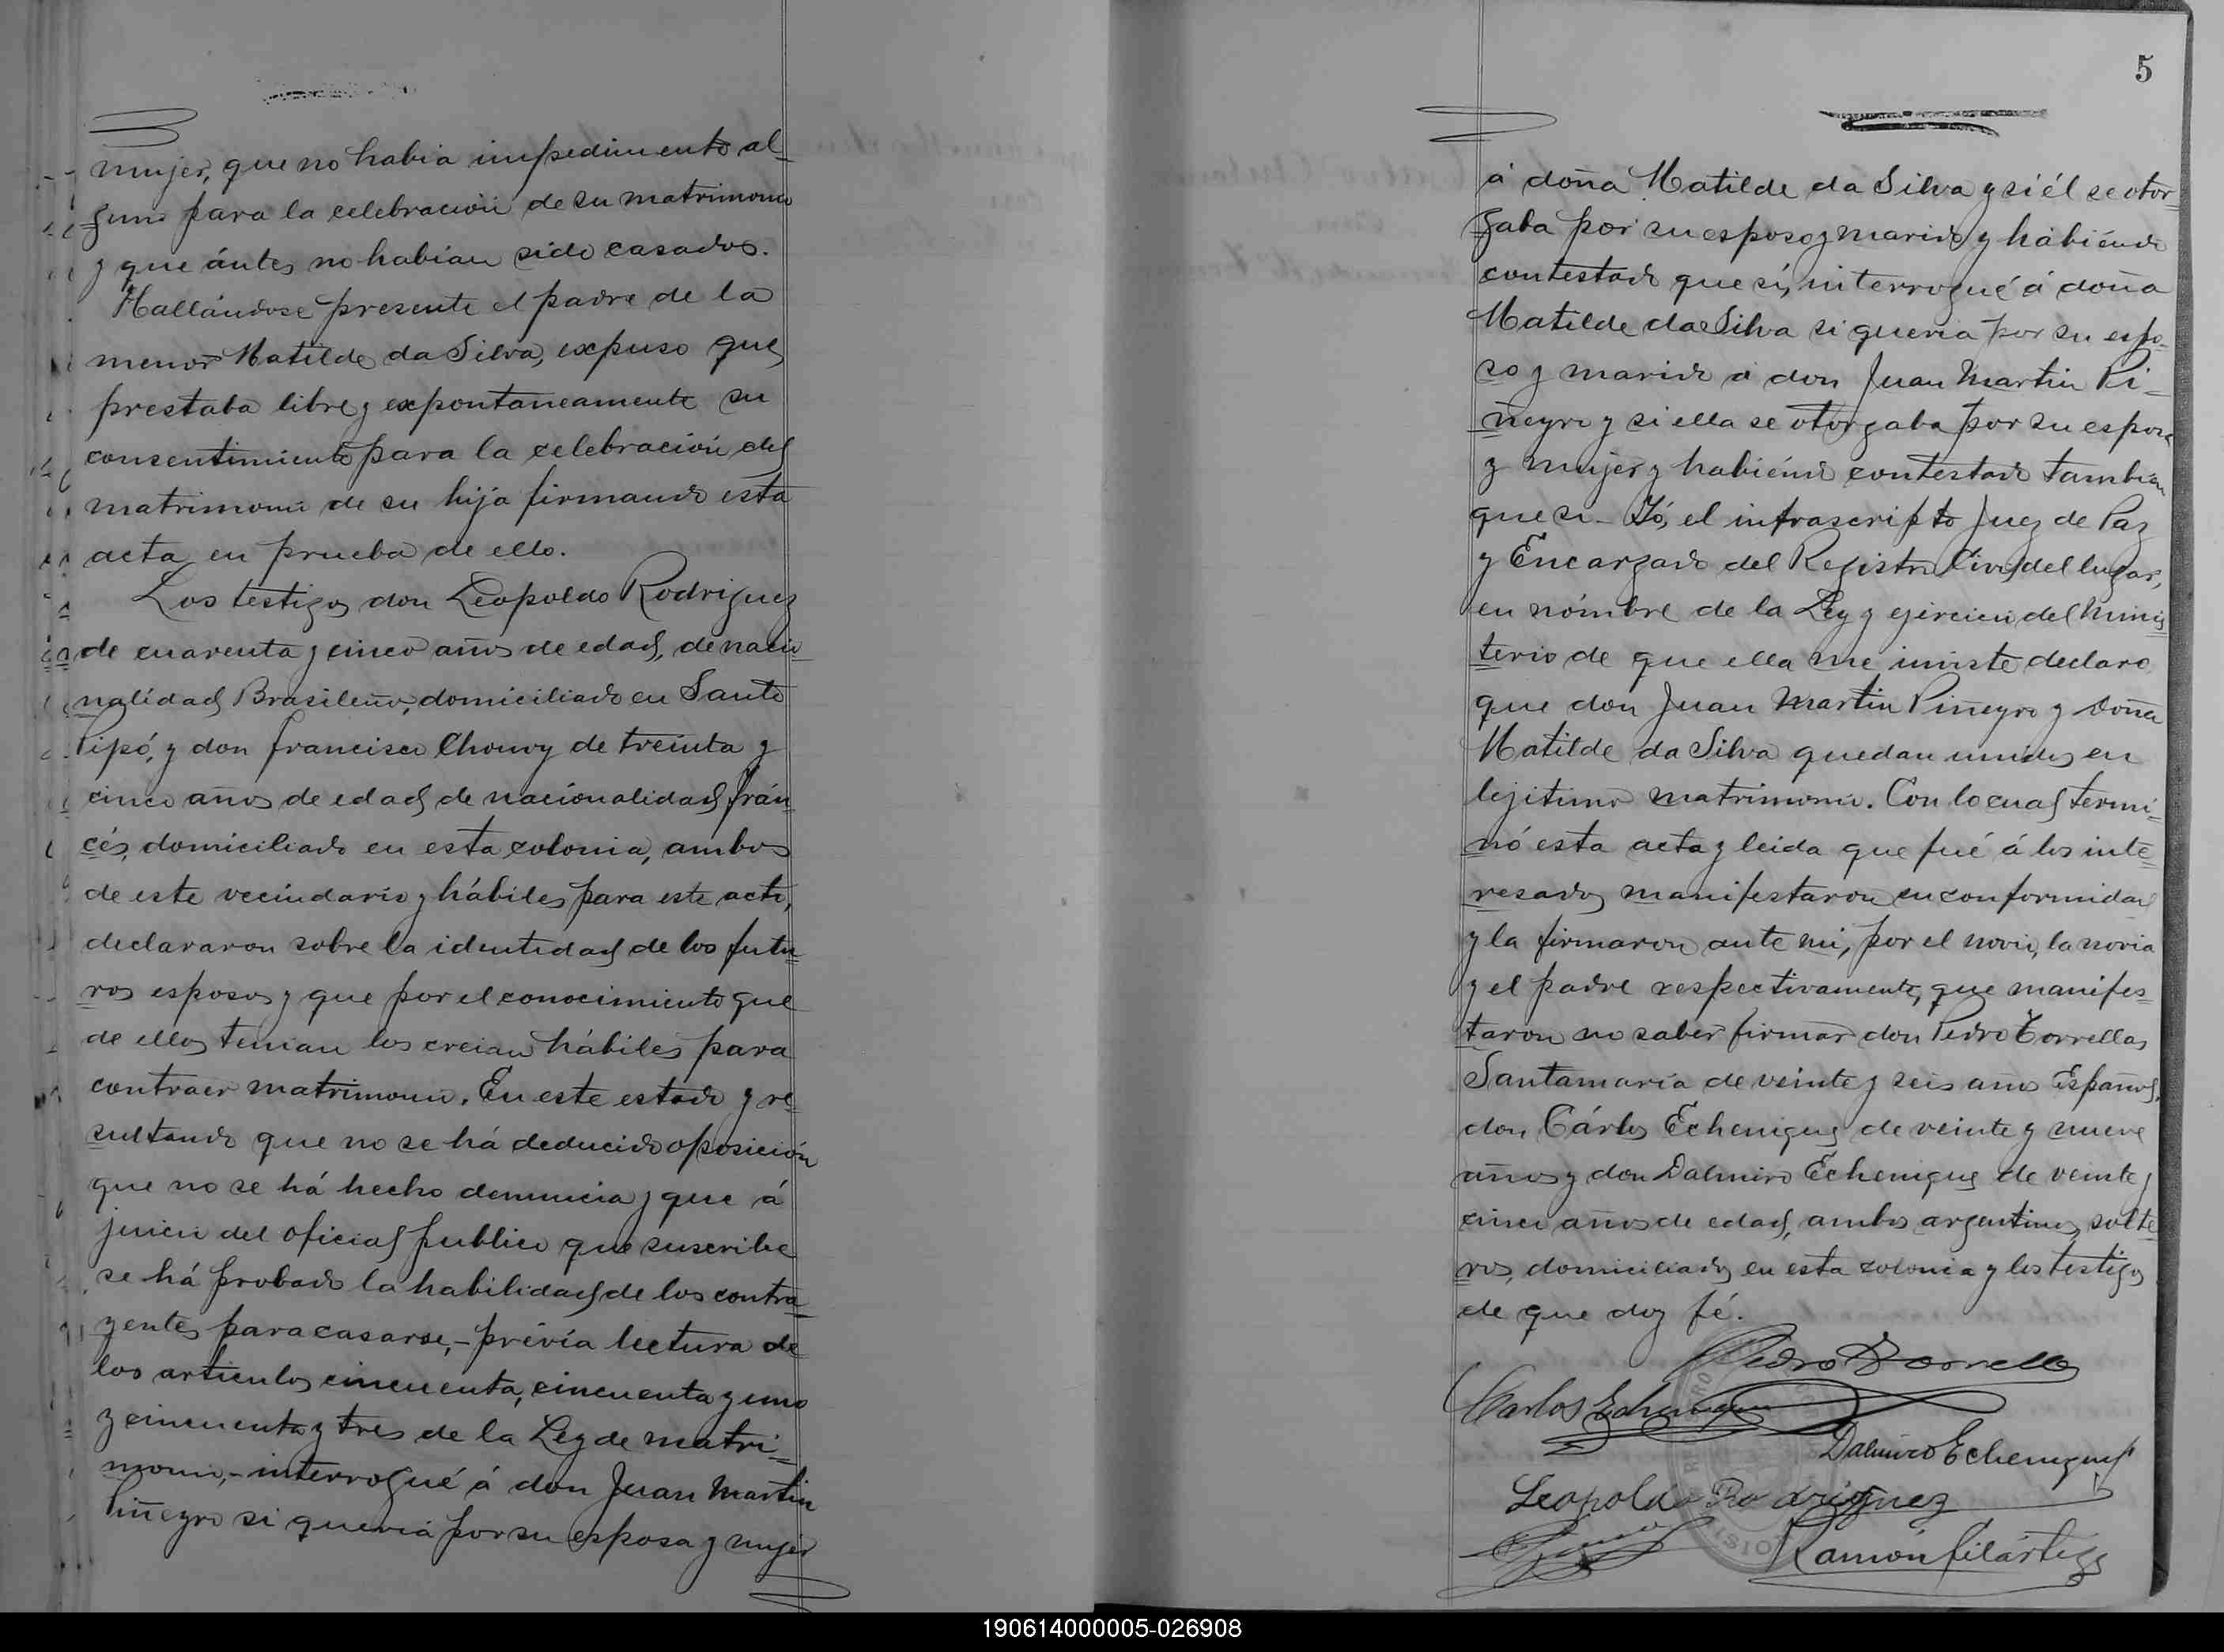 mujer, que no habia impedimento al-
guno para la celebración de su matrimonio
y que ántes no habian sido casados.
Hallándose presente el padre de la
menor Matilde da Silva, expuso que
prestaba libre y expontaneamente su
consentimiento para la celebración del
matrimonio de su hija firmando esta
acta en prueba de ello.
Los testigos don Leopoldo Rodriguez
de cuarenta y cinco años de edad, de nacio-
nalidad Brasileño, domiciliado en Santo
Pipó, y don Francisco Chouvy de treinta y
cinco años de edad de nacionalidad frán-
cés, domiciliado en esta colonia, ambos
de este vecindario y hábiles para este acto,
declararon sobre la identidad de los futu-
ros esposos y que por el conocimiento que
de ellos tenian los creian hábiles para
contraer matrimonio. En este estado y re-
sultando que no se há deducido oposición
que no se há hecho denuncia y que á
juicio del oficial publico que suscribe
se há probado la habilidad de los contra-
yentes para casarse,- prévia lectura de
los articulos cincuenta, cincuenta y uno
y cincuenta y tres de la Ley de matri-
monio,- interrogué á don Juan Martin
Piñeyro si queria por su esposa y mujer
5
á doña Matilde da Silva y si él se otor-
gaba por su esposo y marido y habiéndo
contestado que sí, interrogué á doña
Matilde da Silva si queria por su espo-
so y marido á don Juan Martin Pi-
ñeyro y si ella se otorgaba por su esposa
y mujer y habiéndo contestado tambien
que si- Yó, el infrascripto Juez de Paz
y Encargado del Registro Civil del lugar,
en nómbre de la Ley y ejercicio del Minis-
terio de que ella me inviste declaro
que don Juan Martin Piñeyro y doña
Matilde da Silva quedan unidos en
lejitimo matrimonio. Con lo cual termi-
nó esta acta y leida que fué á los inte-
resados manifestaron su conformidad
y la firmaron ante mi, por el novio, la novia
y el padre respectivamente, que manifes-
taron no saber firmar don Pedro Torrellas
Santamaría de veinte y seis años Español,
don Cárlos Echenique de veinte y nueve
años y don Dalmiro Echenique de veinte y
cinco años de edad, ambos argentinos, solte-
ros, domiciliados en esta colonia y los testigos
de que doy fé.
Pedro Torrellas
Carlos Echenique
Dalmiro Echenique
Leopoldo Rodriguez
Ramón Filártiga
190614000005-026908